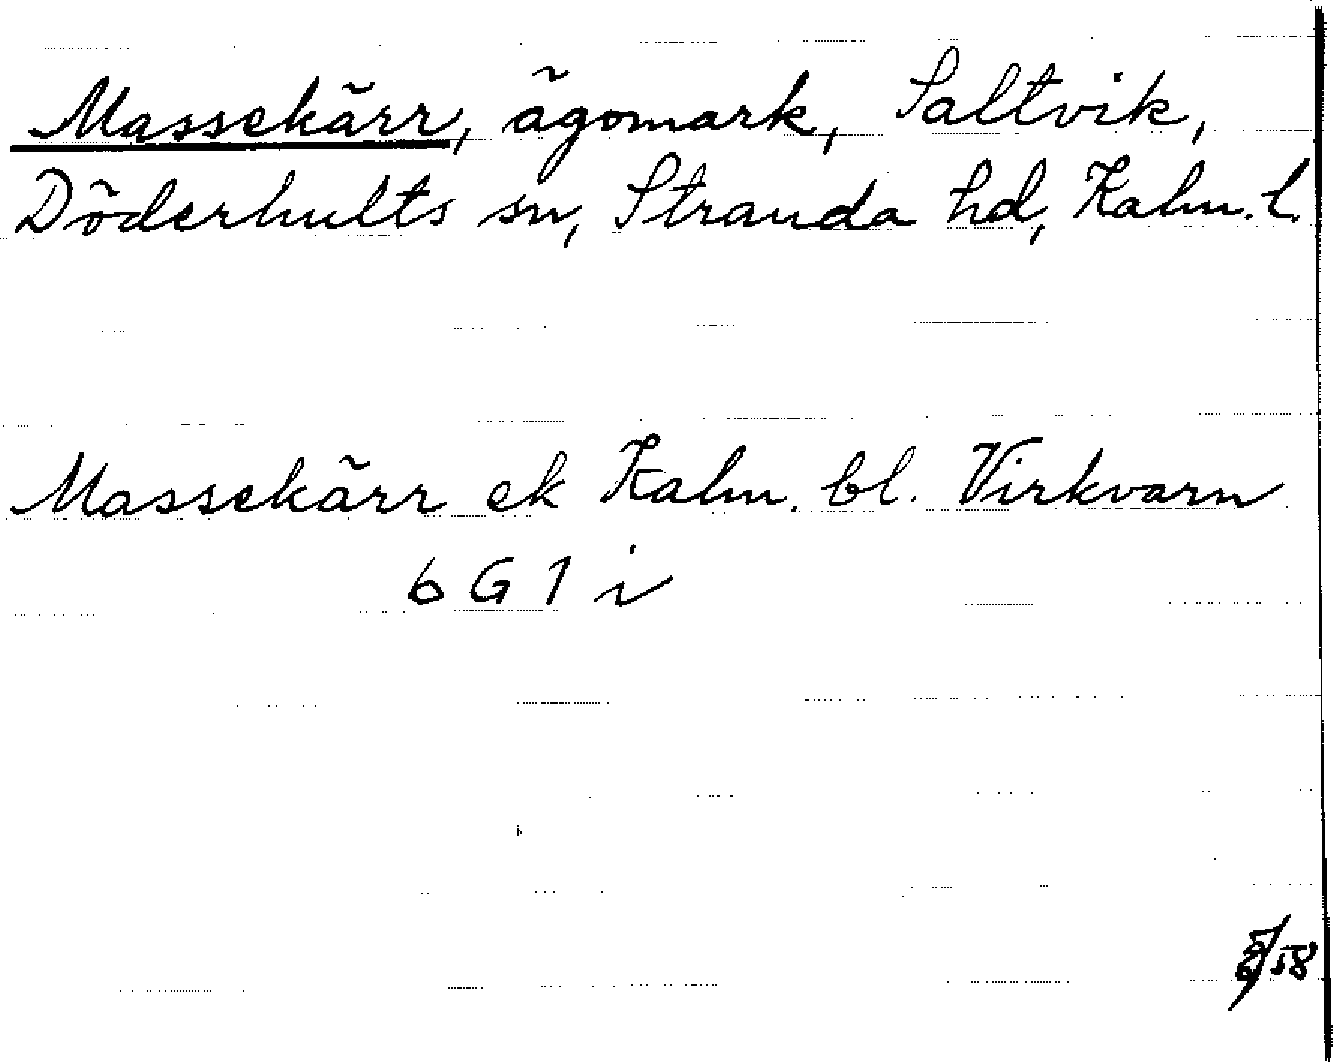 Massekärr, ägomark, Saltvik,
Döderhults sn, Stranda hd, Kalm. l.
Massekärr ek Kalm. bl. Virkvarn
6 G 1 i